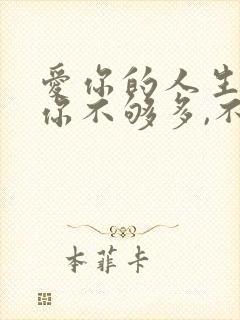 爱你的人生
你不够多,不
本菲卡